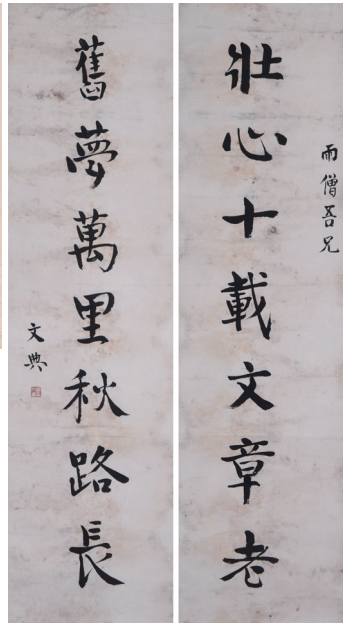 雨僧吾兄
壯心十載文章老
舊夢萬里秋路長
文典